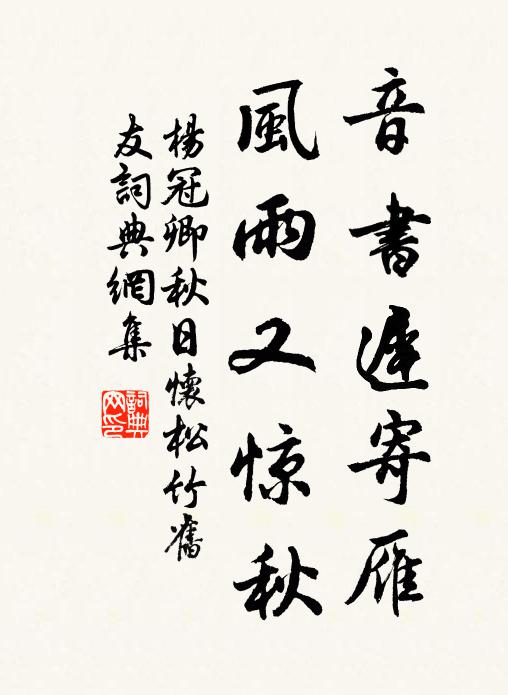 音書遲寄雁
風雨又惊秋
楊冠卿秋日懷松竹舊
友詞典網集
詞典网印